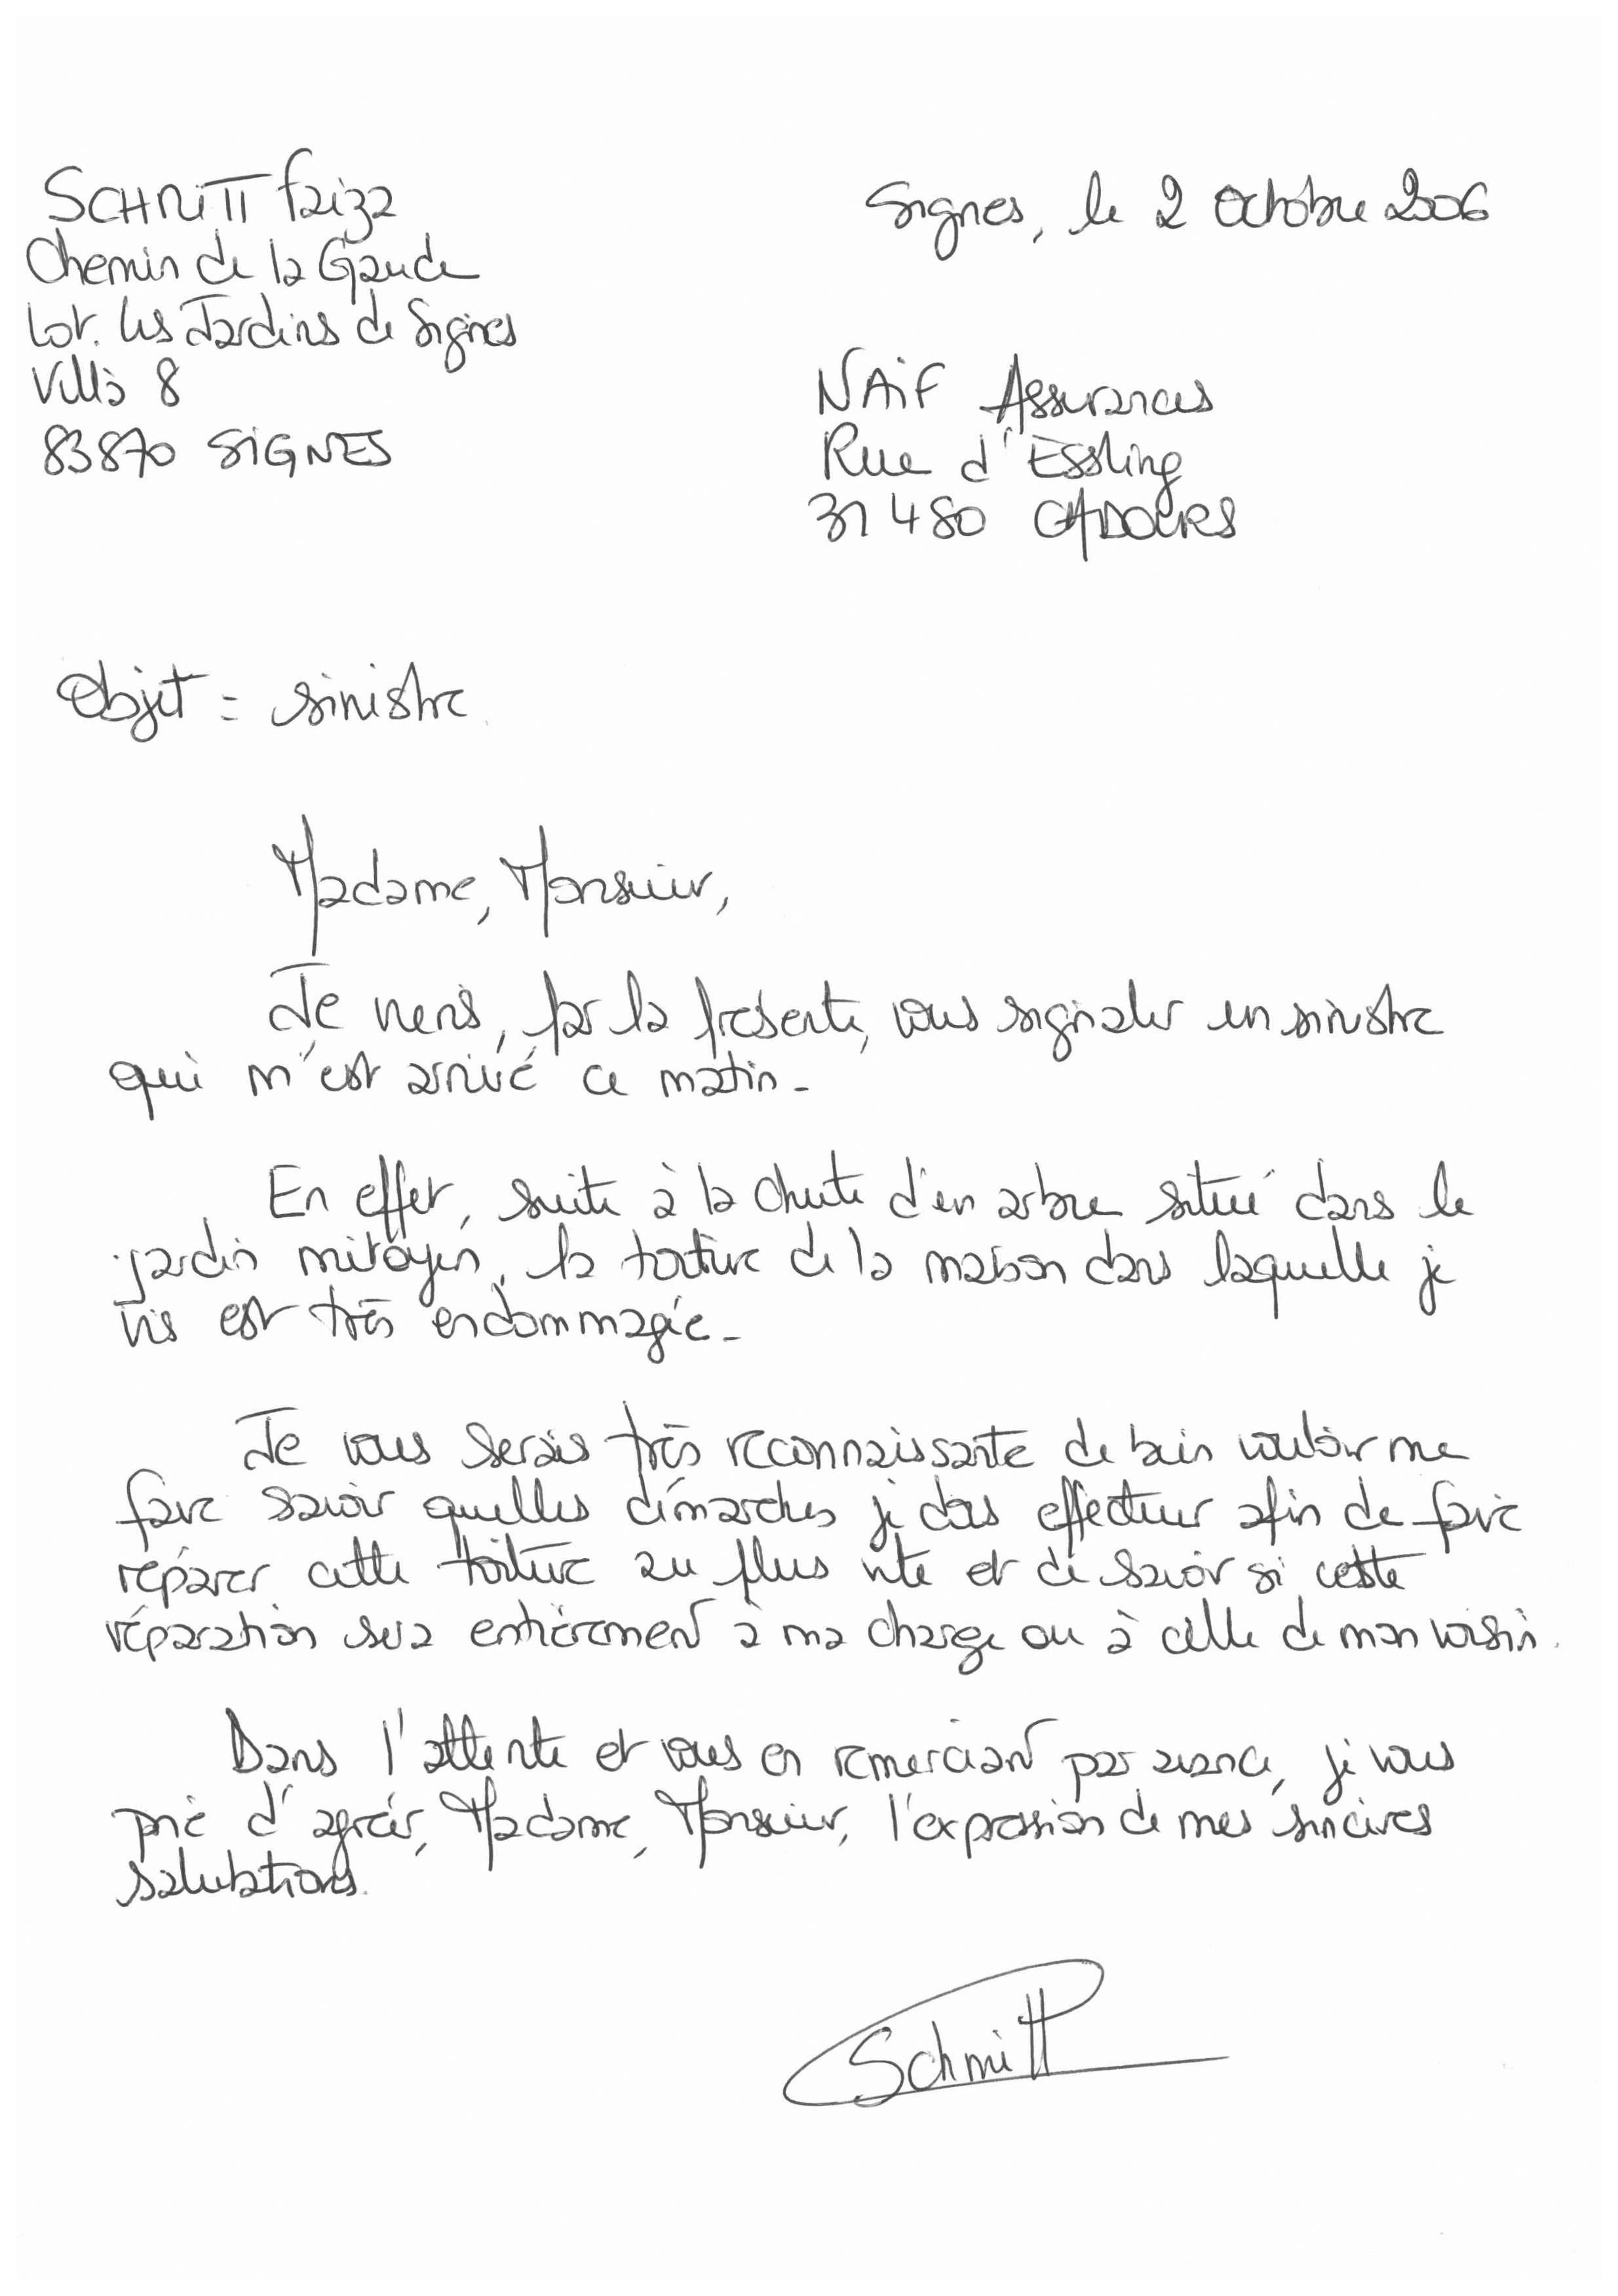 SCHMITT Faiza
Chemin de la Gaude
Lot. les Jardins de Signes
Villa 8
83870 SIGNES
Signes, le 2 Octobre 2006
NAIF Assurances
Rue d'Essling
31480 CADOURS
Objet = sinistre.
Madame, Monsieur,
Je viens, par la présente, vous signaler un sinistre
qui m'est arrivé ce matin.
En effet, suite à la chute d'un arbre situé dans le
jardin mitoyen, la toiture de la maison dans laquelle je
vis est très endommagée.
Je vous serais très reconnaissante de bien vouloir me
faire savoir quelles démarches je dois effectuer afin de faire
réparer cette toiture au plus vite et de savoir si cette
réparation sera entièrement à ma charge ou à celle de mon voisin.
Dans l'attente et vous en remerciant par avance, je vous
prie d'agréer, Madame, Monsieur, l'expression de mes sincères
salutations.
Schmitt